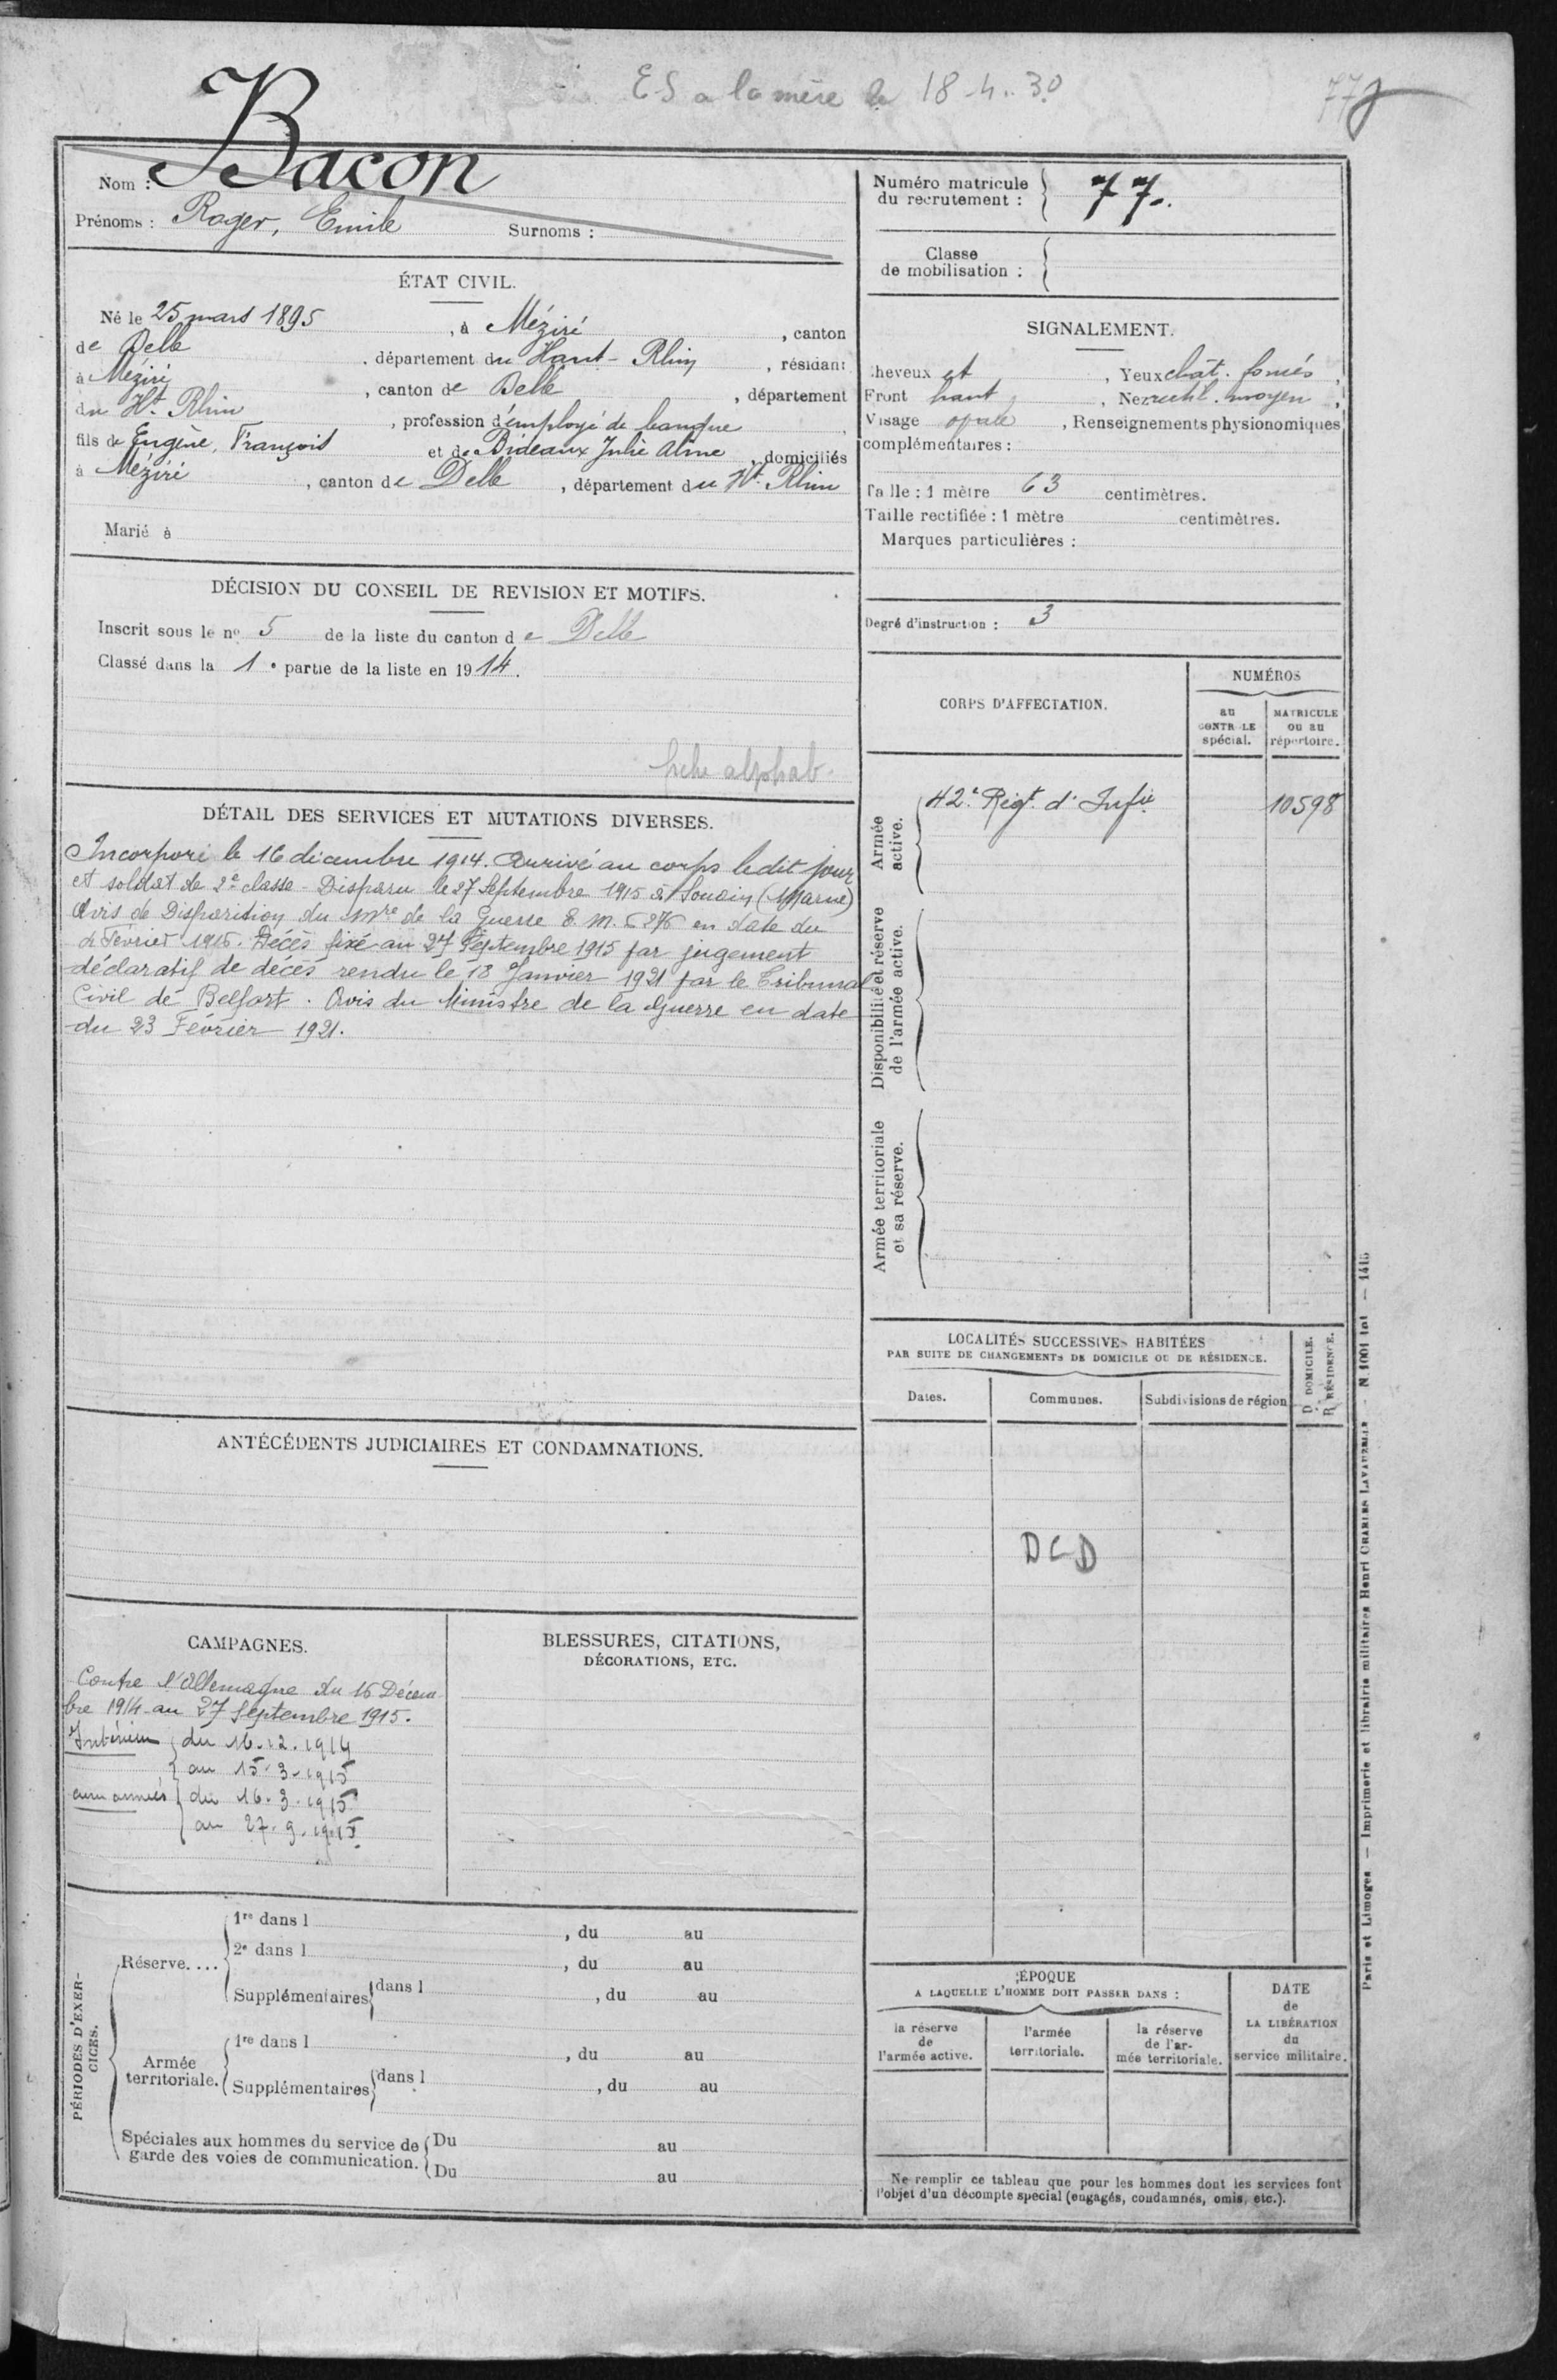 ES a la mère le 18-4-30
77
Nom : Bacon
Prénoms : Roger, Emile Surnoms :
ÉTAT CIVIL.
Né le 25 mars 1895, à Méziré, canton
de Delle, département du Haut-Rhin, résidant
à Méziré, canton de Delle, département
du Ht Rhin, profession d'employé de banque
fils de Eugène, François et de Bideaux Julie Aline, domiciliés
à Méziré, canton de Delle, département du Ht Rhin
Marié à
DÉCISION DU CONSEIL DE REVISION ET MOTIFS.
Inscrit sous le no 5 de la liste du canton de Delle
Classé dans la 1e partie de la liste en 1914.
fiche alphab.
DÉTAIL DES SERVICES ET MUTATIONS DIVERSES.
Incorporé le 16 décembre 1914. Arrivé au corps ledit jour
et soldat de 2e classe - Disparu le 27 Septembre 1915 à Souain (Marne)
Avis de Disparition du Mre de la Guerre E. M. en date du
Février 1916. Décès fixé au 27 Septembre 1915 par jugement
déclaratif de décès rendu le 18 Janvier 1921 par le Tribunal
Civil de Belfort. Avis du Ministre de la Guerre en date
du 23 Février 1921.
ANTÉCÉDENTS JUDICIAIRES ET CONDAMNATIONS.
CAMPAGNES.
Contre l'Allemagne du 16 Décem
bre 1914 au 27 Septembre 1915.
Intérieur { du 16.12.1914
{ au 15.3.1915
aux armées { du 16.3.1915
{ au 27.9.1915
BLESSURES, CITATIONS,
DÉCORATIONS, ETC.
PÉRIODES D'EXER-
CICES.
Réserve....
1re dans l , du au
2e dans l , du au
Supplémentaires { dans l , du au
Armée
territoriale.
1re dans l , du au
Supplémentaires { dans l , du au
Spéciales aux hommes du service de { Du au
garde des voies de communication. { Du au
Numéro matricule
du recrutement : } 77.
Classe
de mobilisation :
SIGNALEMENT.
Cheveux et , Yeux chât. foncés,
Front haut, Nez rectil. moyen,
Visage ovale, Renseignements physionomiques
complémentaires :
Taille : 1 mètre 63 centimètres.
Taille rectifiée : 1 mètre centimètres.
Marques particulières :
Degré d'instruction : 3
CORPS D'AFFECTATION.
NUMÉROS
au
CONTRÔLE
spécial.
MATRICULE
ou au
répertoire.
Armée
active.
42e Régt d'Infie 10598
Disponibilité et réserve
de l'armée active.
Armée territoriale
et sa réserve.
LOCALITÉS SUCCESSIVES HABITÉES
PAR SUITE DE CHANGEMENTS DE DOMICILE OU DE RÉSIDENCE.
D. DOMICILE.
R. RÉSIDENCE.
Dates. Communes. Subdivisions de région
DCD
ÉPOQUE
A LAQUELLE L'HOMME DOIT PASSER DANS :
la réserve
de
l'armée active.
l'armée
territoriale.
la réserve
de l'ar-
mée territoriale.
DATE
de
LA LIBÉRATION
du
service militaire.
Ne remplir ce tableau que pour les hommes dont les services font
l'objet d'un décompte spécial (engagés, condamnés, omis, etc.).
Paris et Limoges — Imprimerie et librairie militaires Henri CHARLES LAVAUZELLE — N 1001 tot — 1415